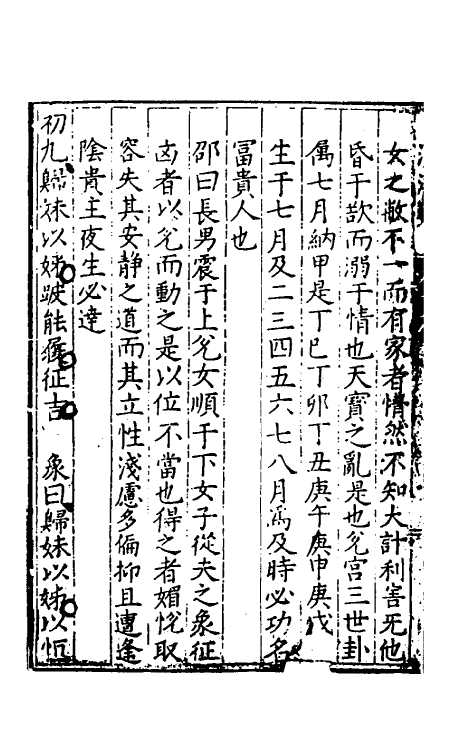 女之敝不一而有家者情然不知大計利害旡他
昏于歖而溺于情也天寳之亂是也兊宮三世卦
属七月納甲是丁巳丁夘丁丑庚午庚申庚戌
生于七月及二三四五六七八月爲及時必功名
冨貴人也
邵曰長男震于上兊女順于下女子從夫之象征
凶者以兊而動之是以位不當也得之者媚悅取
容失其安静之道而其立性淺慮多偏抑且遭逢
隂貴主夜生必達
初九歸妹以娣跛能履征吉 象曰歸妹以娣以恒